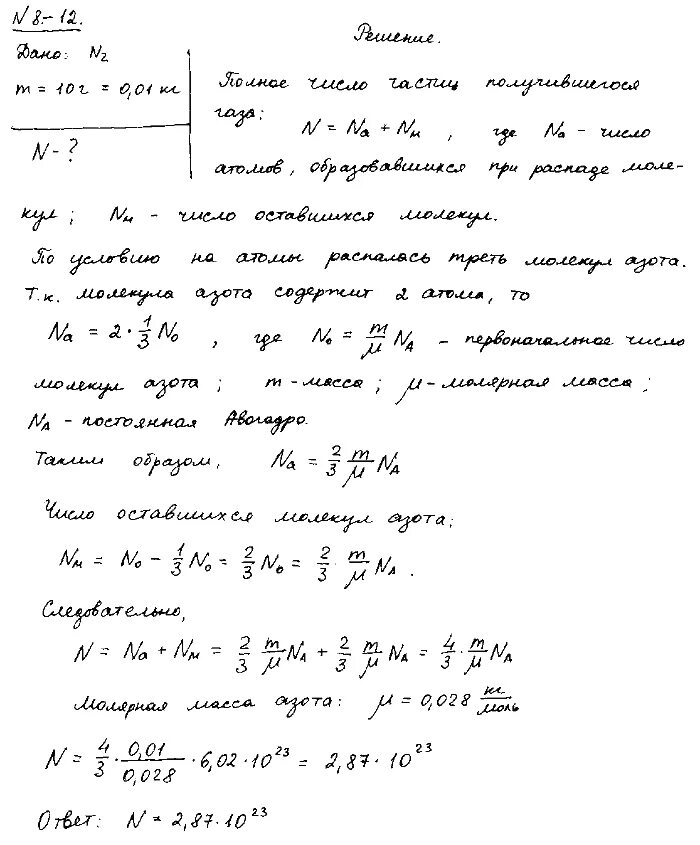 N 8-12.
Решение.
Дано: N₂
m = 10г = 0,01 кг
N - ?
Полное число частиц получившегося
газа:
N = Nа + Nм , где Nа - число
атомов, образовавшихся при распаде моле-
кул; Nм - число оставшихся молекул.
По условию на атомы распалась треть молекул азота.
Т.к. молекула азота содержит 2 атома, то
Nа = 2 · 1/3 N₀ , где N₀ = m/μ N_A - первоначальное число
молекул азота; m - масса; μ - молярная масса;
N_A - постоянная Авогадро.
Таким образом, Nа = 2/3 m/μ N_A
Число оставшихся молекул азота:
Nм = N₀ - 1/3 N₀ = 2/3 N₀ = 2/3 · m/μ N_A .
Следовательно,
N = Nа + Nм = 2/3 m/μ N_A + 2/3 m/μ N_A = 4/3 · m/μ N_A
Молярная масса азота: μ = 0,028 кг/моль
N = 4/3 · 0,01/0,028 · 6,02 · 10²³ = 2,87 · 10²³
Ответ: N = 2,87 · 10²³